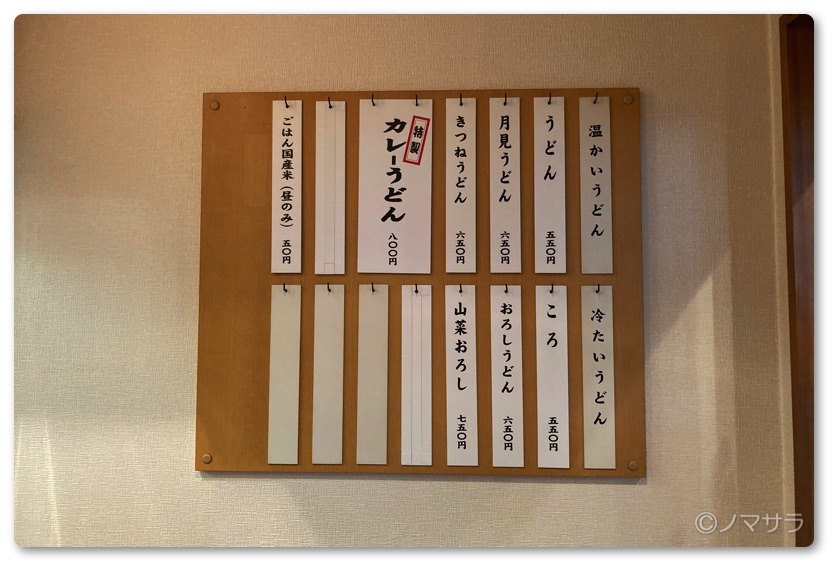 温かいうどん
うどん 五五〇円
月見うどん 六五〇円
きつねうどん 六五〇円
特製
カレーうどん 八〇〇円
ごはん国産米（昼のみ） 五〇円
冷たいうどん
ころ 五五〇円
おろしうどん 六五〇円
山菜おろし 七五〇円
©ノマサラ